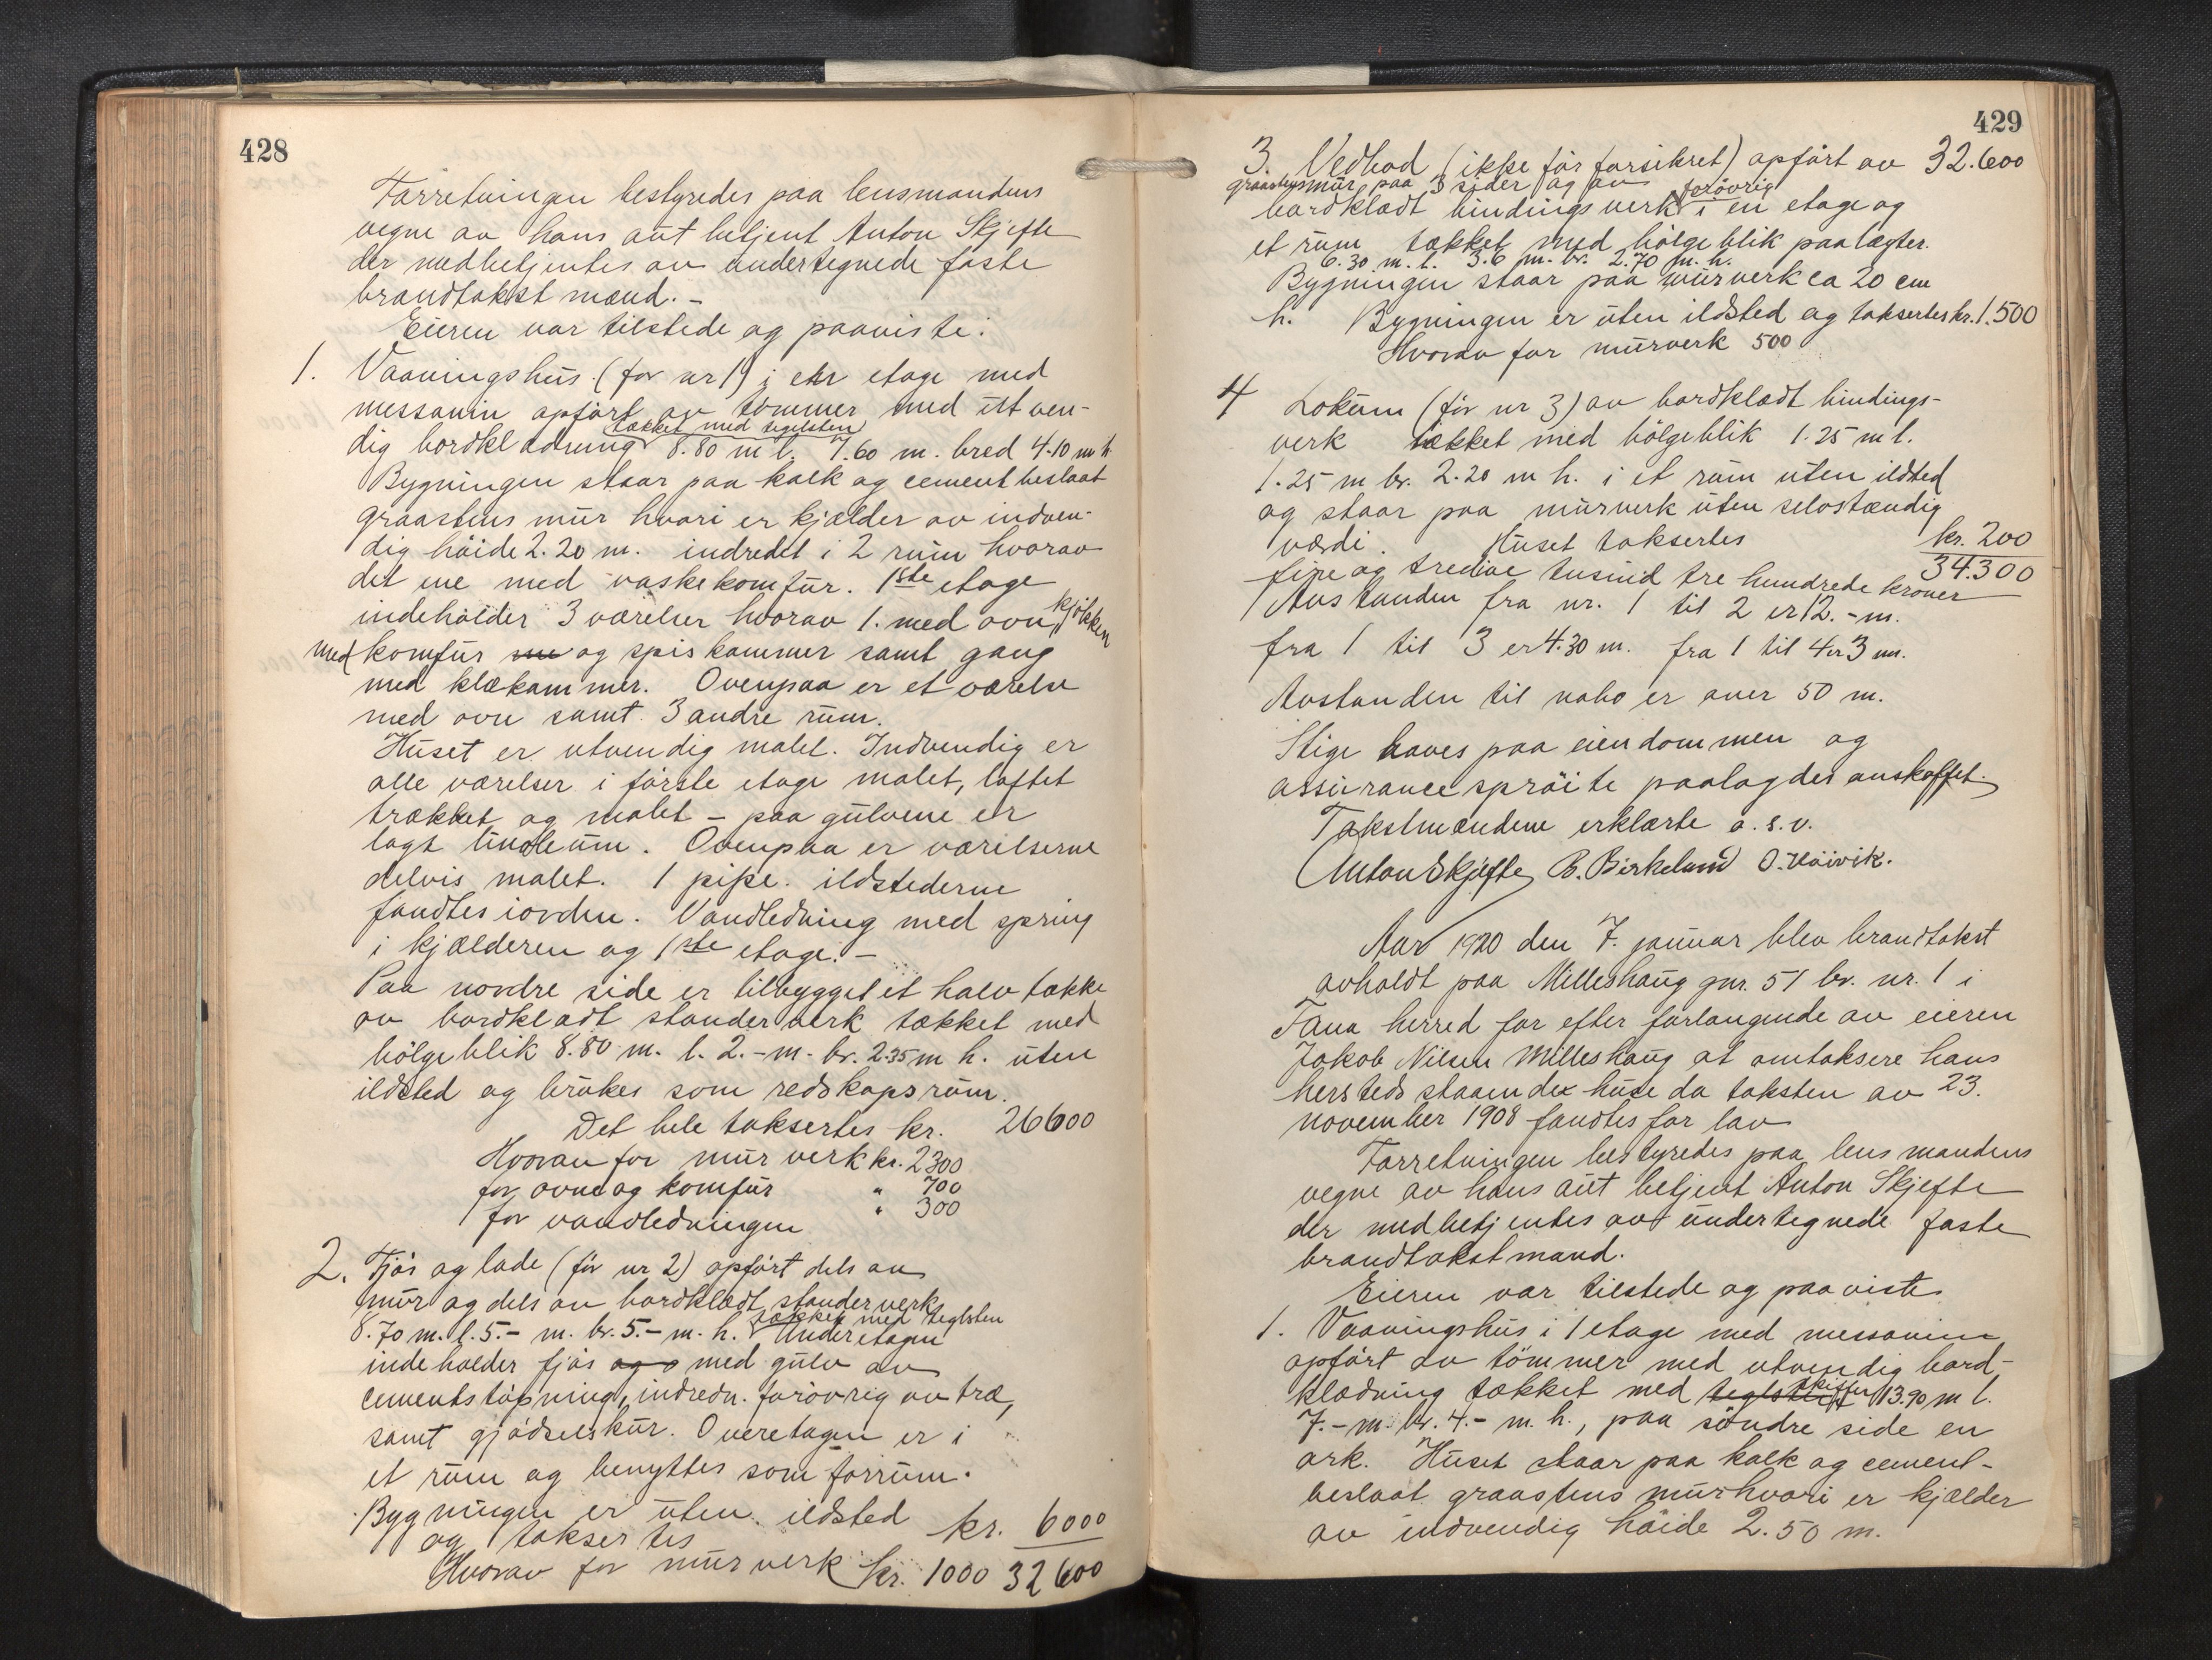 428
Forretningen bestyredes paa lensmandens
vegne av hans aut betjent Anton Skjefte
der medbetjentes av undertegnede faste
brandtakst mænd. -
Eieren var tilstede og paaviste:
1. Vaaningshus (før nr 1) i en etage med
messanin opført av tømmer med utven-
takket med teglsten
dig bordklædning 8.80 m l. 7.60 m. bred 4.10 m h
Bygningen staar paa kalk og cement beslaat
graastens mur hvori er kjælder av indven-
dig høide 2.20 m. indredet i 2 rum hvorav
det ene med vaskekomfur. 1ste etage
indeholder 3 værelser hvorav 1. med ovn, kjøkken
med komfur og spiskammer samt gang
med klækammer. Ovenpaa er et værelse
med ovn samt 3 andre rum.
Huset er utvendig malet. Indvendig er
alle værelser i første etage malet, loftet
trækket og malet - paa gulvene er
lagt linoleum. Ovenpaa er værelserne
delvis malet. 1 pipe. ildstederne
fandtes iorden. Vandledning med spring
i kjælderen og 1ste etage. -
Paa nordre side er tilbygget et halv tække
av bordklædt stander verk tækket med
bølgeblik 8.80 m. l. 2.- m. br. 2.35 m h. uten
ildsted og brukes som redskapsrum.
Det hele taksertes kr. 26600
Hvorav for mur verk kr. 2300
for ovne og komfur " 700
for vandledningen " 300
2. Fjøs og lade (før nr 2) opført dels av
mur og dels av bordklædt standerverk
tækket med teglsten
8.70 m. l. 5.- m. br. 5.- m. h. Underetagen
indeholder fjøs og o med gulv av
cementstøpning, indredn. forøvrig av træ,
samt gjødselskur. Overetagen er i
et rum og benyttes som forrum.
Bygningen er uten ildsted
og taksertes kr. 6000
Hvorav for mur verk kr. 1000 32600
429
3. Vedbod (ikke før forsikret) opført av 32.600
graastensmur paa 3 sider og av forøvrig
bordklædt bindingsverk i en etage og
et rum tækket med bølgeblik paa lægter.
6.30 m. l. 3.6 m. br. 2.70 m. h.
Bygningen staar paa murverk ca 20 cm
h. Bygningen er uten ildsted og taksertes kr. 1.500
Hvorav for murverk 500
4 Lokum (før nr 3) av bordklædt bindings-
verk tækket med bølgeblik 1.25 m l.
1.25 m br. 2.20 m h. i et rum uten ildsted
og staar paa murverk uten selvstændig
værdi. Huset taksertes kr. 200
34.300
fire og tredive tusind tre hundrede kroner
Avstanden fra nr. 1 til 2 er 12.- m.
fra 1 til 3 er 4.30 m. fra 1 til 4 er 3 m.
Avstanden til nabo er over 50 m.
Stige haves paa eiendommen og
assurancesprøite paalagdes anskaffet.
Takstmændene erklærte o. s. v.
Anton Skjefte B. Birkeland O. Høivik.
Aar 1920 den 7. januar blev brandtakst
avholdt paa Milleshaug gnr. 51 br. nr. 1 i
Fana herred for efter forlangende av eieren
Jakob Nilsen Milleshaug at omtaksere hans
hersteds staaende huse da taksten av 23.
november 1908 fandtes for lav
Forretningen bestyredes paa lensmandens
vegne av hans aut betjent Anton Skjefte
der medbetjentes av undertegnede faste
brandtakstmænd.
Eieren var tilstede og paaviste
1. Vaaningshus i 1 etage med messanin
opført av tømmer med utvendig bord-
klædning tækket med teglsten skiffer 13.90 m l.
7.- m. br. 4.- m. h., paa søndre side en
ark. Huset staar paa kalk og cement-
beslaat graastens mur hvori er kjælder
av indvendig høide 2.50 m.